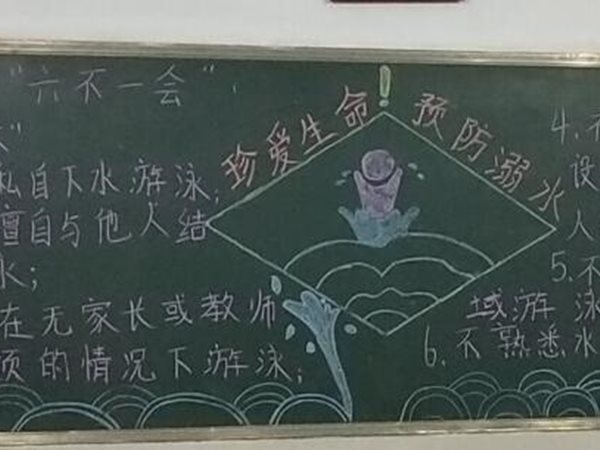 "六不一会"
私自下水游泳;
擅自与他人结
水;
在无家长或教师
的情况下游泳;
珍爱生命! 预防溺水
4. 不
设
人
5. 不
域游泳
6. 不熟悉水